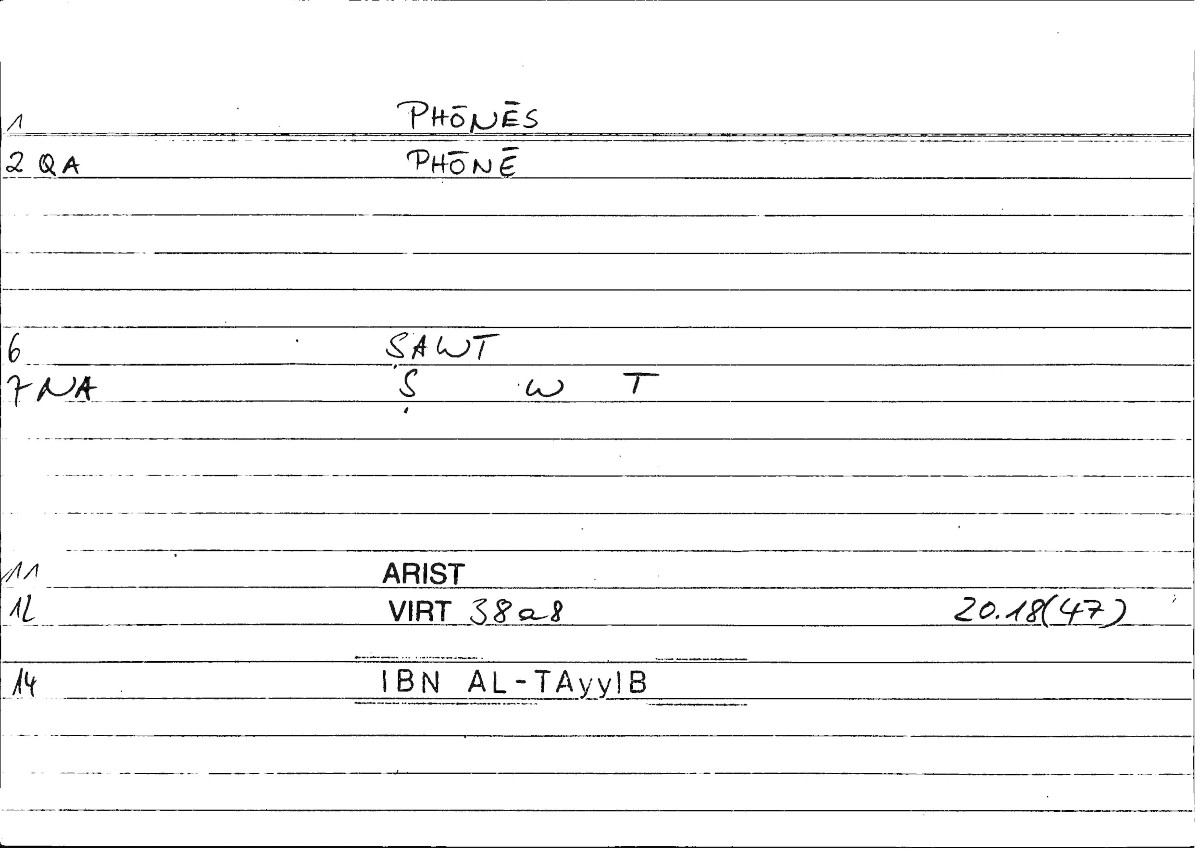 1 PHŌNĒS
2 QA PHŌNĒ
6 ṢAWT
7 NA Ṣ W T
11 ARIST
12 VIRT 38a8 20.18(47)
14 IBN AL-TAyyIB